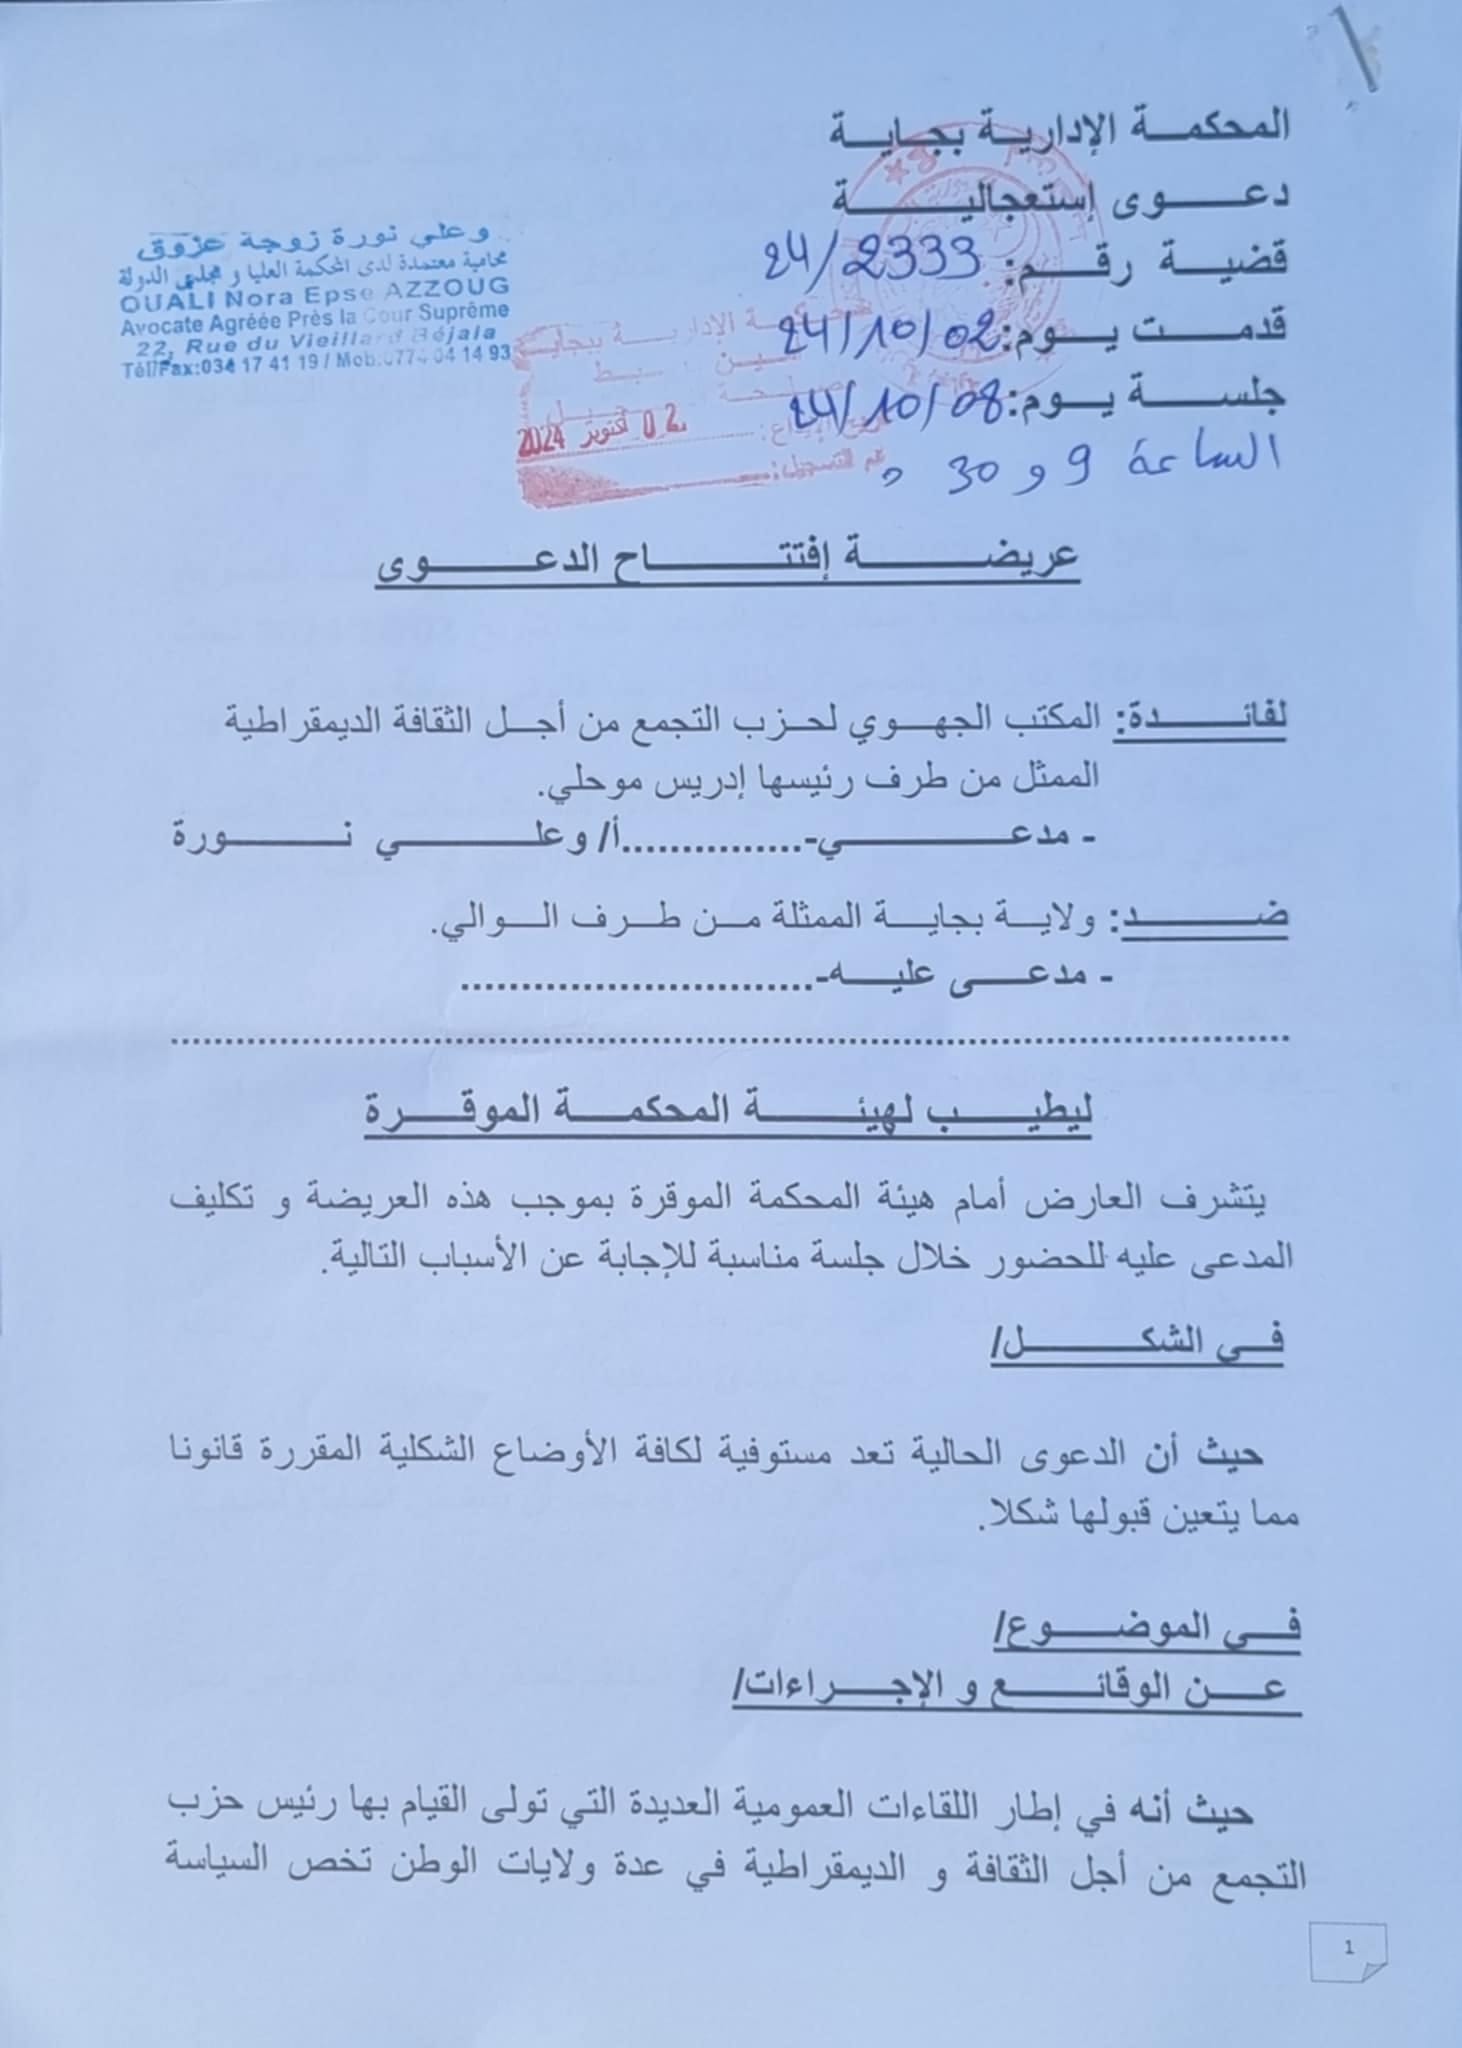 المحكمة الإدارية بجاية
دعوى إستعجالية
قضية رقم: 24/2333
قدمت يوم: 24/10/02
جلسة يوم: 24/10/08
الساعة 9 و 30 د
وعلي نورة زوجة عزوق
محامية معتمدة لدى المحكمة العليا و مجلس الدولة
OUALI Nora Epse AZZOUG
Avocate Agréée Près la Cour Suprême
22, Rue du Vieillard Béjaia
Tél/Fax:034 17 41 19 / Mob:0774 04 14 93
الإدارية ببجاية
02 أكتوبر 2024
رقم التسجيل:
عريضة إفتتاح الدعوى
لفائدة: المكتب الجهوي لحزب التجمع من أجل الثقافة الديمقراطية
الممثل من طرف رئيسها إدريس موحلي.
- مدعي-...............أ/ وعلي نورة
ضد: ولاية بجاية الممثلة من طرف الوالي.
- مدعى عليه-.............................
ليطيب لهيئة المحكمة الموقرة
يتشرف العارض أمام هيئة المحكمة الموقرة بموجب هذه العريضة و تكليف
المدعى عليه للحضور خلال جلسة مناسبة للإجابة عن الأسباب التالية.
في الشكل/
حيث أن الدعوى الحالية تعد مستوفية لكافة الأوضاع الشكلية المقررة قانونا
مما يتعين قبولها شكلا.
في الموضوع/
عن الوقائع و الإجراءات/
حيث أنه في إطار اللقاءات العمومية العديدة التي تولى القيام بها رئيس حزب
التجمع من أجل الثقافة و الديمقراطية في عدة ولايات الوطن تخص السياسة
1